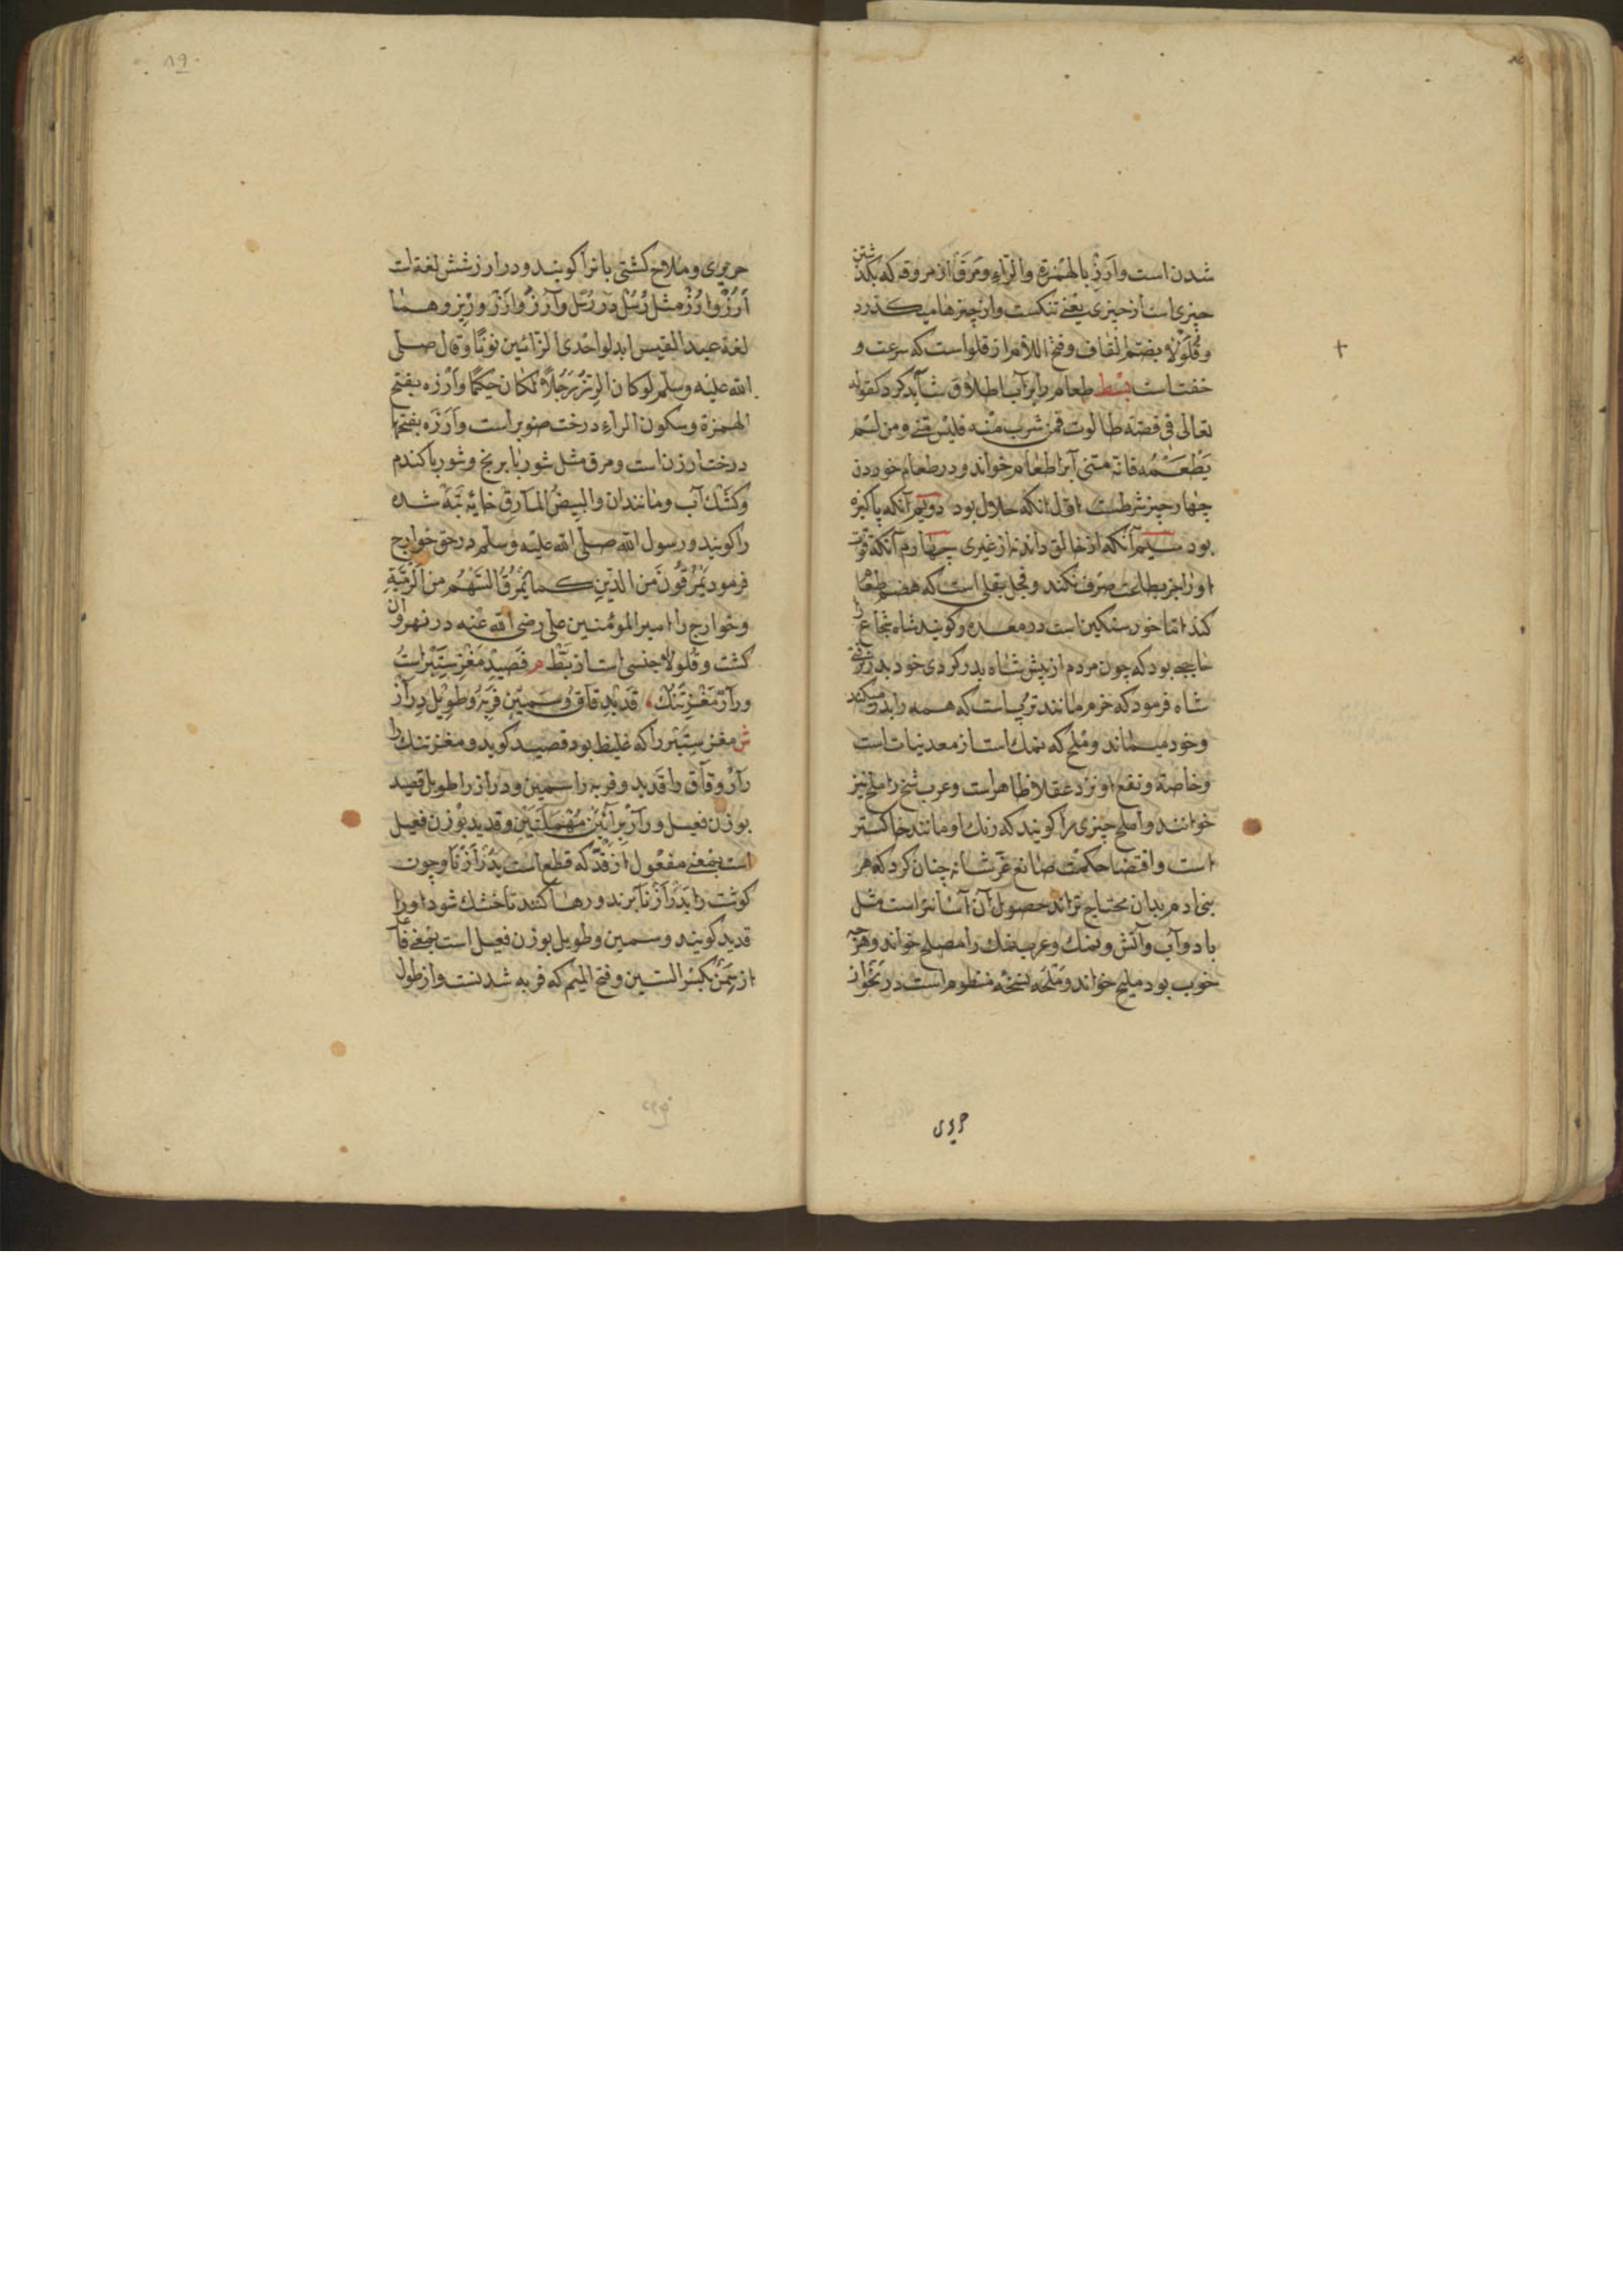 شدن است وارز بالهمزة والراء ومرق از مروقه که بگذشتن
چیزی است از چیزی یعنی تنکست واز چیزها میکذرد
وقلولا بضم القاف وفتح اللام از قلواست که سرعت و
خفت است بسط طعام را بر آب اطلاق شاید کرد کقوله
تعالی فی قصة طالوت فمن شرب منه فلیس منی ومن لم
یطعمه فانه منی آبرا طعام خواند ودر طعام خوردن
چهار چیز شرطست اول انکه حلال بود دویم آنکه پاکیزه
بود سیم آنکه از خالق داند نه از غیری چهارم آنکه قوت
او را جز بطاعت صرف نکند وفجل بقلی است که هضم طعام
کند اما خود سنکین است در معده وکویند شاه شجاع را
حاجبه بود که چون مردم از پیش شاه بدر کردی خود بدر نرفتی
شاه فرمود که خرم مانند تربی است که همه را بدر میکند
وخود میماند وملح که نمك است از معدنیات است
وخاصة ونفع او نزد عقلا ظاهر است وعرب شخ را ملح نیز
خوانند واملح چیزی را کویند که رنك او مانند خاکستر
است واقتضا حکمت صانع عز شانه چنان کرد که هر
بنی ادم بدان محتاج تراند حصول آن آسانتر است مثل
باد وآب وآتش ونمك وعرب نمك را مصلح خواند وهرچه
خوب بود ملیح خواند وملحه نسخه منظوم است در نحو از
حریری
حریری وملاح کشتی بانرا کویند ودر ارز شش لغة است
ارز وارز مثل رسل در رسل وارز وارز ورنز وهما
لغة عبد القیس ابدلوا احدی الزائین نونا وقال صلی
الله علیه وسلم لو کان الرنز رجلا لکان حکیما وارزه بفتح
الهمزة وسکون الراء درخت صنوبر است وارزه بفتحها
درخت ارزن است ومرق مثل شوربا برنج وشوربا کندم
وکشك آب ومانند ان والبیض المارق خایه تبه شده
را کویند ورسول الله صلی الله علیه وسلم در حق خوارج
فرمود یمرقون من الدین کما یمرق السهم من الرمیة
وخوارج را امیر المؤمنین علی رضی الله عنه در نهروان
کشت وقلولا جنسی است از بط م قصید مغز ستبر است
ورار مغز تنك قدید قاق وسمین فربه وطویل دراز
ش مغز ستبر را که غلیظ بود قصید کوید ومغز تنك را
رار وقاق را قدید وفربه را سمین ودراز را طویل قصید
بوزن فعیل ورار برائین مهملتین وقدید بوزن فعیل
است بمعنی مفعول از قد که قطع است بدرازنا وچون
کوشت را بدرازنا برند ورها کنند تا خشك شود او را
قدید کویند وسمین وطویل بوزن فعیل است بمعنی فاعل
از سمن بکسر السین وفتح المیم که فربه شدنست واز طول